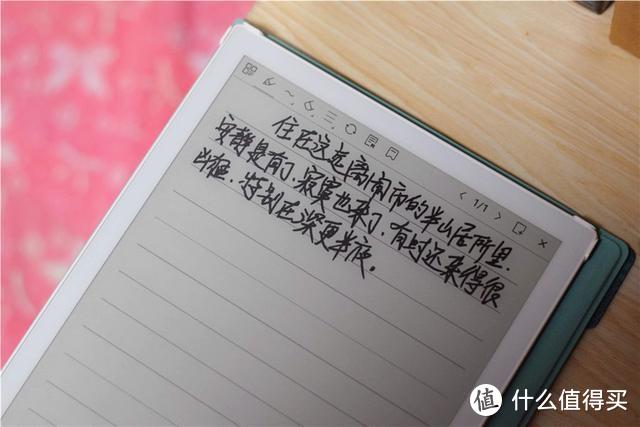 1/1
住在这远离闹市的半山居所里.
安静是有了.寂寞也来了.有时还来得很
凶狠.特别在深更半夜。
值 什么值得买